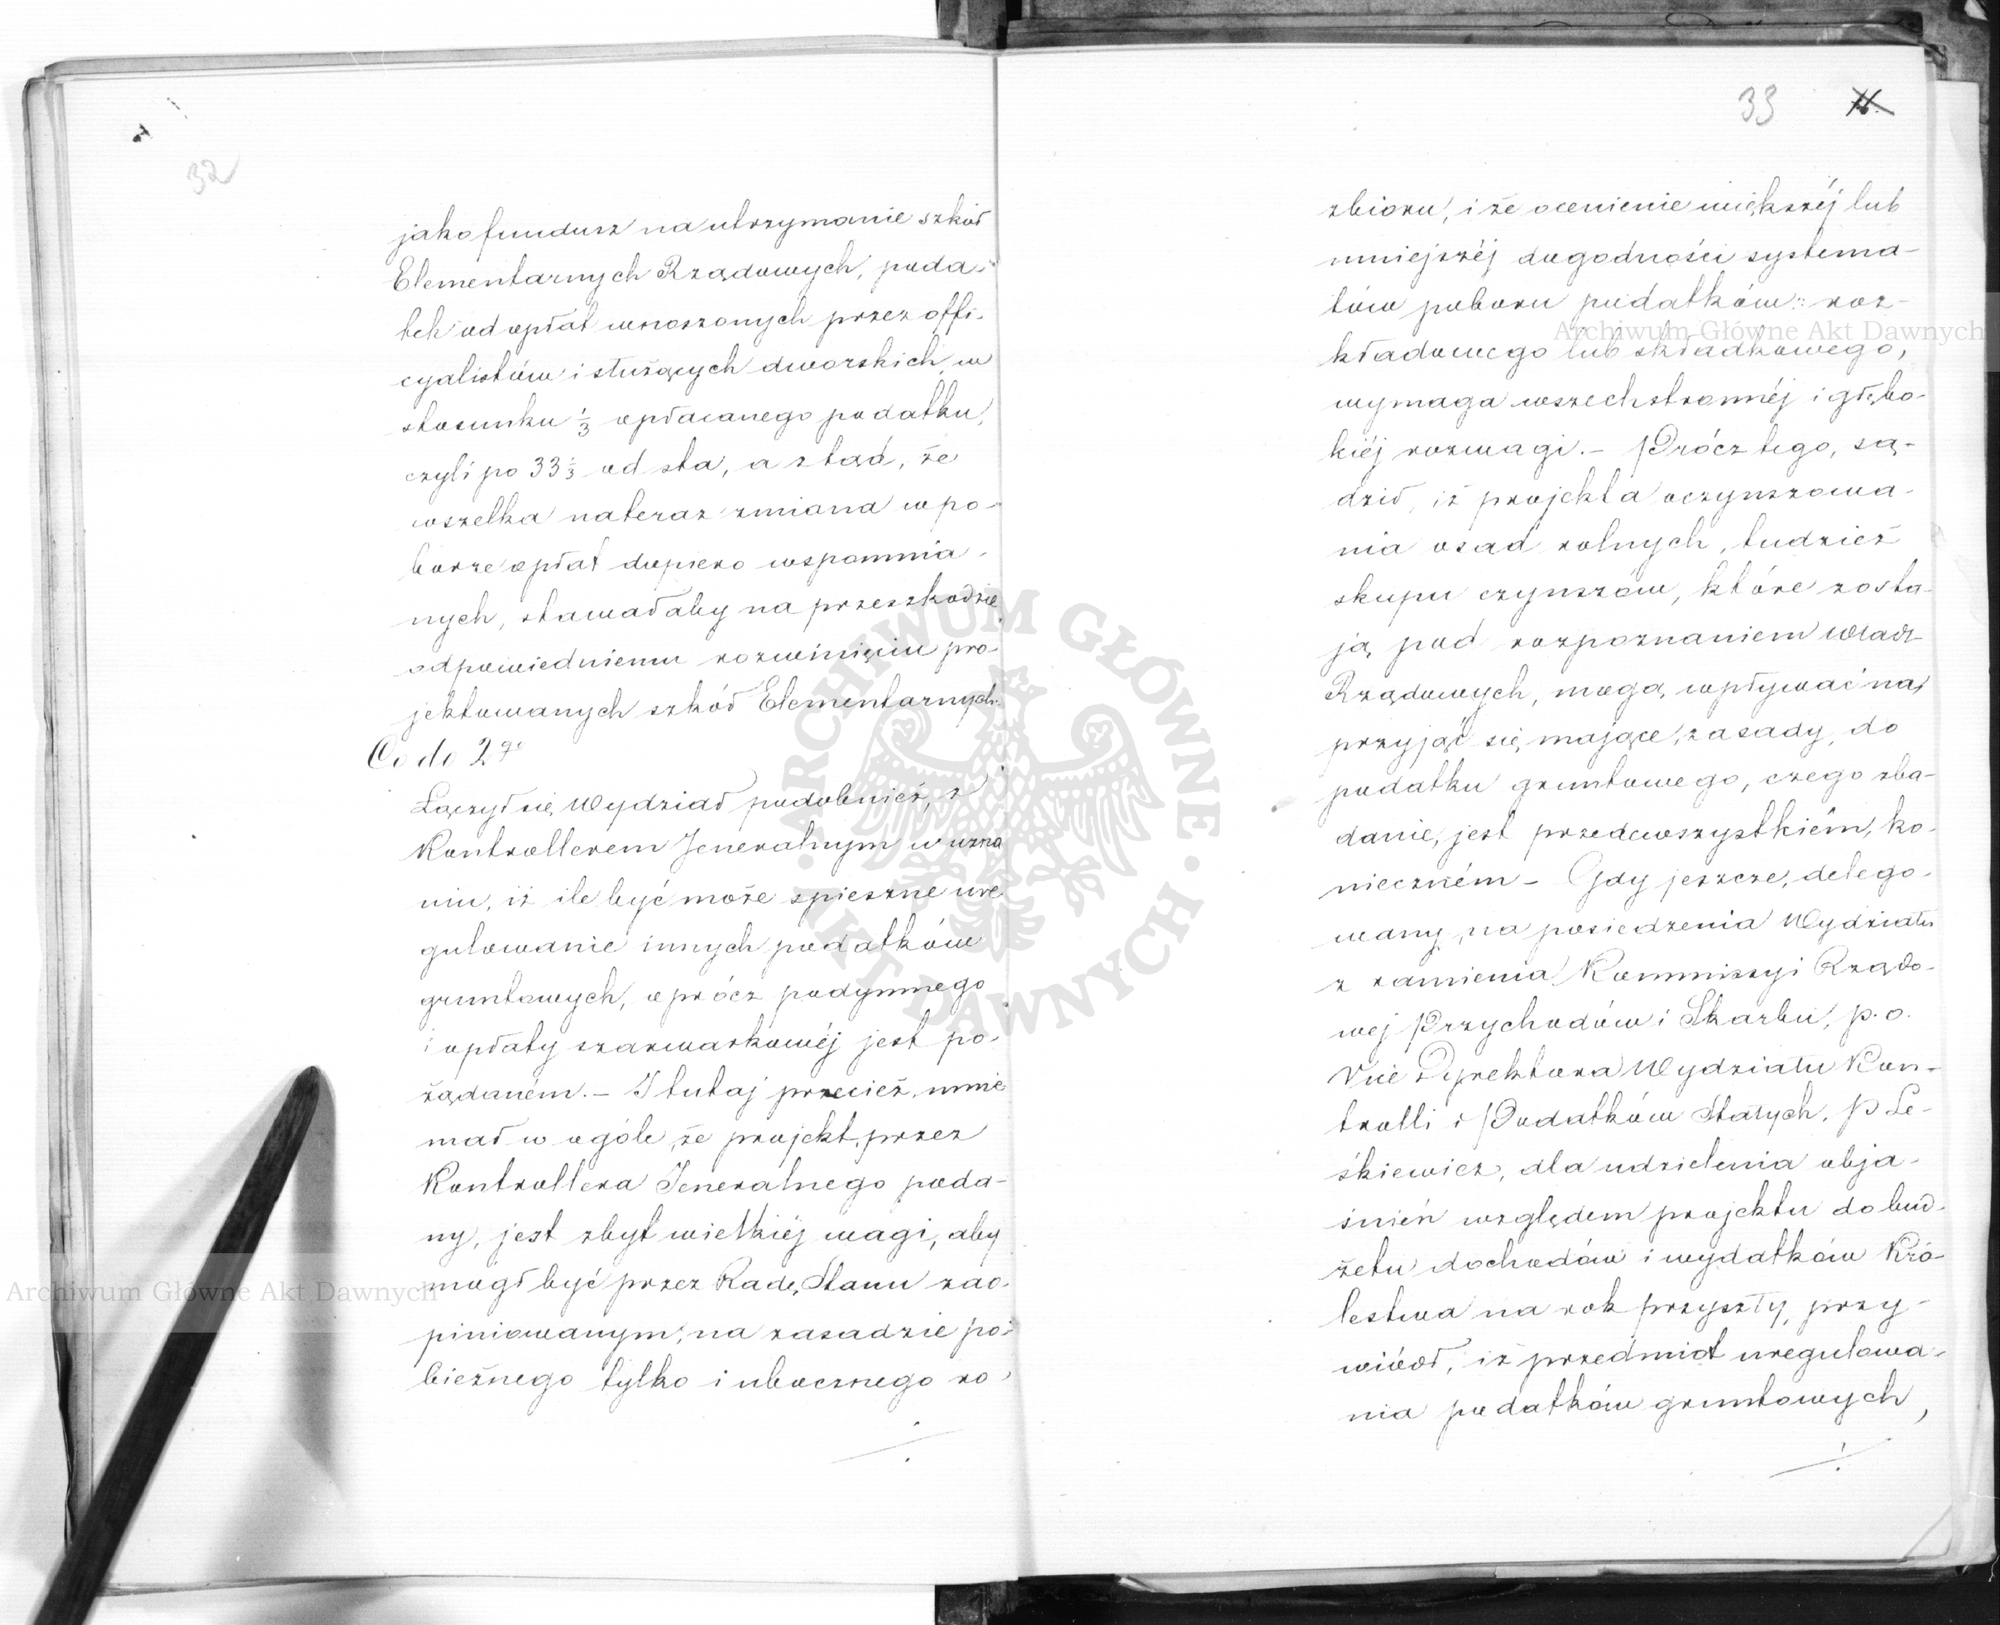 32
jako fundusz na utrzymanie szkół
Elementarnych Rządowych, poda-
tek od opłat wnoszonych przez offi-
cyalistów i służących dworskich, w
stosunku 1/3 opłacanego podatku,
czyli po 33 1/3 od sta, a ztąd, że
wszelka nateraz zmiana w po-
borze opłat dopiero wspomnia-
nych, stawałaby na przeszkodzie
odpowiedniemu rozwinięciu pro-
jektowanych szkół Elementarnych.
Co do 2go
Łączył się Wydział podobnież, z
Kontrollerem Jeneralnym w uzna
niu, iż ile być może spieszne ure
gulowanie innych podatków
gruntowych, oprócz podymnego
i opłaty szarwarkowéj jest po-
żądaném. – I tutaj przecież, mnie
mał w ogóle, że projekt, przez
Kontrollera Jeneralnego poda-
ny, jest zbyt wielkiéj wagi, aby
mógł być przez Radę Stanu zao-
piniowanym, na zasadzie po-
bieżnego tylko i ubocznego ro-
33
zbioru, i że ocenienie większéj lub
mniejszéj dogodności systema-
tów poboru podatków: roz-
kładowego lub składkowego,
wymaga wszechstronnéj i głębo-
kiéj rozwagi. – Prócz tego, są-
dził, iż projekta oczynszowa-
nia osad rolnych, tudzież
skupu czynszów, które zosta-
ją pod rozpoznaniem Władz
Rządowych, mogą wpływać na
przyjąć się mające zasady, do
podatku gruntowego, czego zba-
danie, jest przedewszystkiém, ko-
nieczném – Gdy jeszcze, delego-
wany, na posiedzenia Wydziału
z ramienia Kommissyi Rządo-
wej Przychodów i Skarbu, p. o.
Vice Dyrektora Wydziału Kon-
trolli i Podatków Stałych, P Le-
śkiewicz, dla udzielenia obja-
śnień względem projektu do bud-
żetu dochodów i wydatków Kró-
lestwa na rok przyszły, przy-
wiódł, iż przedmiot uregulowa-
nia podatków gruntowych,
Archiwum Główne Akt Dawnych
Archiwum Główne Akt Dawnych
ARCHIWUM GŁÓWNE · AKT DAWNYCH ·